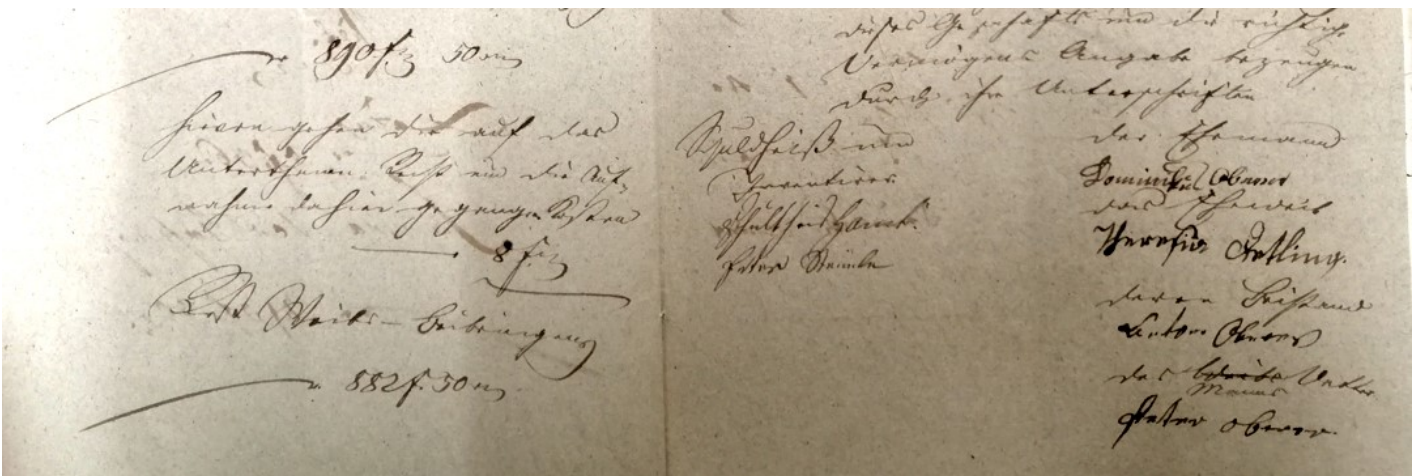 890 f. 50 x
hievon gehen die auf das
Unterthanen Recht und die Auf-
nahme dahier gegangen Kosten
8 f.
Rest Weibs-Beibringens
882 f. 50 x
dieses Geschäfts und die richtige
Vermögens Angabe bezeugen
durch ihre Unterschriften
Schuldheiß und
Inventirer
Schultheis Hauck
Peter
der Ehemann
Dominikus Oberer
das Eheweib
Theresia Oetling.
deren Beistand
Anton Oberer
des Weibs Vatter
Manns
Peter Oberer